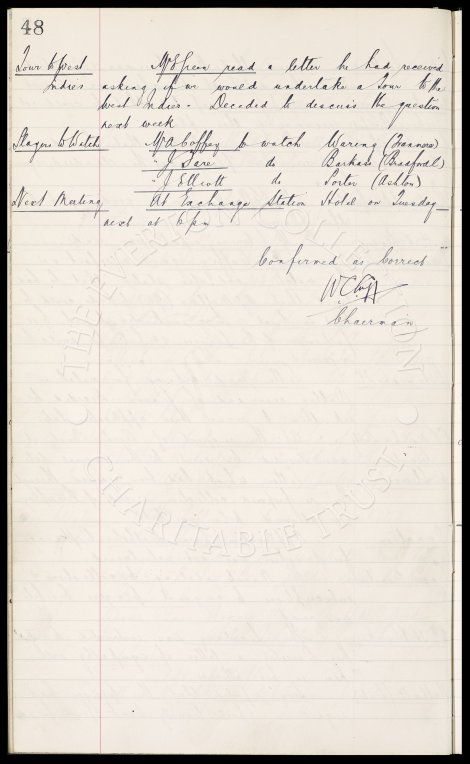 48
Tour to West Mr E Green read a letter he had received
Indies asking if we would undertake a Tour to the
West Indies - Decided to discuss the question
next week
Players to Watch Mr A Coffey to watch Waring (Tranmere)
" J Sare do Barkass (Bradford C)
" J Elliott do Porter (Ashton)
Next Meeting At Exchange Station Hotel on Tuesday
next at 6 pm
Confirmed as Correct
W.C. Cuff
Chairman
THE EVERTON COLLECTION
CHARITABLE TRUST